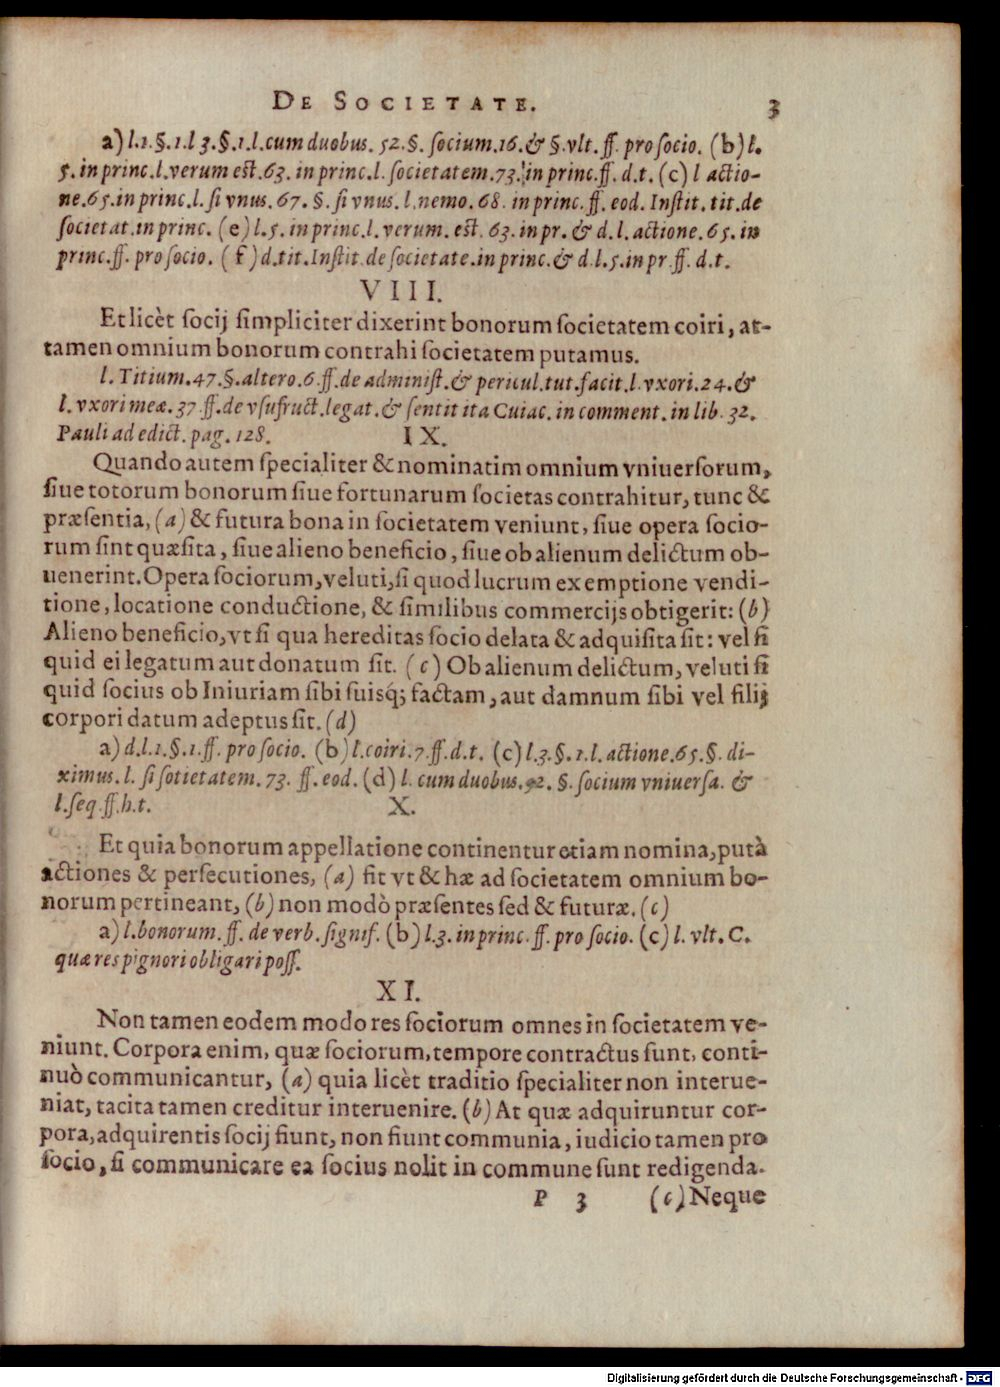 DE SOCIETATE. 3
a) l.1.§.1.l 3.§.1.l.cum duobus. 52.§. socium.16.& §.vlt. ff. pro socio. (b) l.
5. in princ.l.verum est.63. in princ.l. societatem.73. in princ.ff. d.t. (c) l actio-
ne.65.in princ.l. si vnus. 67. §. si vnus. l.nemo. 68. in princ.ff. eod. Instit. tit.de
societat.in princ. (e) l.5. in princ.l. verum. est. 63. in pr. & d.l. actione.65. in
princ.ff. pro socio. (f) d.tit. Instit.de societate.in princ.& d l.5.in pr.ff. d.t.
VIII.
Et licèt socij simpliciter dixerint bonorum societatem coiri, at-
tamen omnium bonorum contrahi societatem putamus.
l. Titium.47.§.altero.6.ff.de administ.& pericul.tut.facit.l.vxori.24.&
l.vxori meæ.37.ff.de vsufruct.legat.& sentit ita Cuiac. in comment. in lib. 32.
Pauli ad edict. pag. 128. IX.
Quando autem specialiter & nominatim omnium vniuersorum,
siue totorum bonorum siue fortunarum societas contrahitur, tunc &
præsentia, (a) & futura bona in societatem veniunt, siue opera socio-
rum sint quæsita, siue alieno beneficio, siue ob alienum delictum ob-
uenerint. Opera sociorum, veluti, si quod lucrum ex emptione vendi-
tione, locatione conductione, & similibus commercijs obtigerit: (b)
Alieno beneficio, vt si qua hereditas socio delata & adquisita sit: vel si
quid ei legatum aut donatum sit. (c) Ob alienum delictum, veluti si
quid socius ob Iniuriam sibi suisq́; factam, aut damnum sibi vel filij
corpori datum adeptus sit. (d)
a) d.l.1.§.1.ff. pro socio. (b) l.coiri.7.ff.d.t. (c) l.3.§.1.l.actione.65.§. di-
ximus.l. si sotietatem.73. ff. eod. (d) l. cum duobus.92. §. socium vniuersa. &
l.seq.ff.h.t. X.
Et quia bonorum appellatione continentur etiam nomina, putà
actiones & persecutiones, (a) fit vt & hæ ad societatem omnium bo-
norum pertineant, (b) non modò præsentes sed & futuræ. (c)
a) l.bonorum. ff. de verb. signif. (b) l.3. in princ. ff. pro socio. (c) l. vlt. C.
quæ res pignori obligari poss.
XI.
Non tamen eodem modo res sociorum omnes in societatem ve-
niunt. Corpora enim, quæ sociorum, tempore contractus sunt, conti-
nuò communicantur, (a) quia licèt traditio specialiter non interue-
niat, tacita tamen creditur interuenire. (b) At quæ adquiruntur cor-
pora, adquirentis socij fiunt, non fiunt communia, iudicio tamen pro
socio, si communicare ea socius nolit in commune sunt redigenda.
P 3 (c) Neque
Digitalisierung gefördert durch die Deutsche Forschungsgemeinschaft - DFG